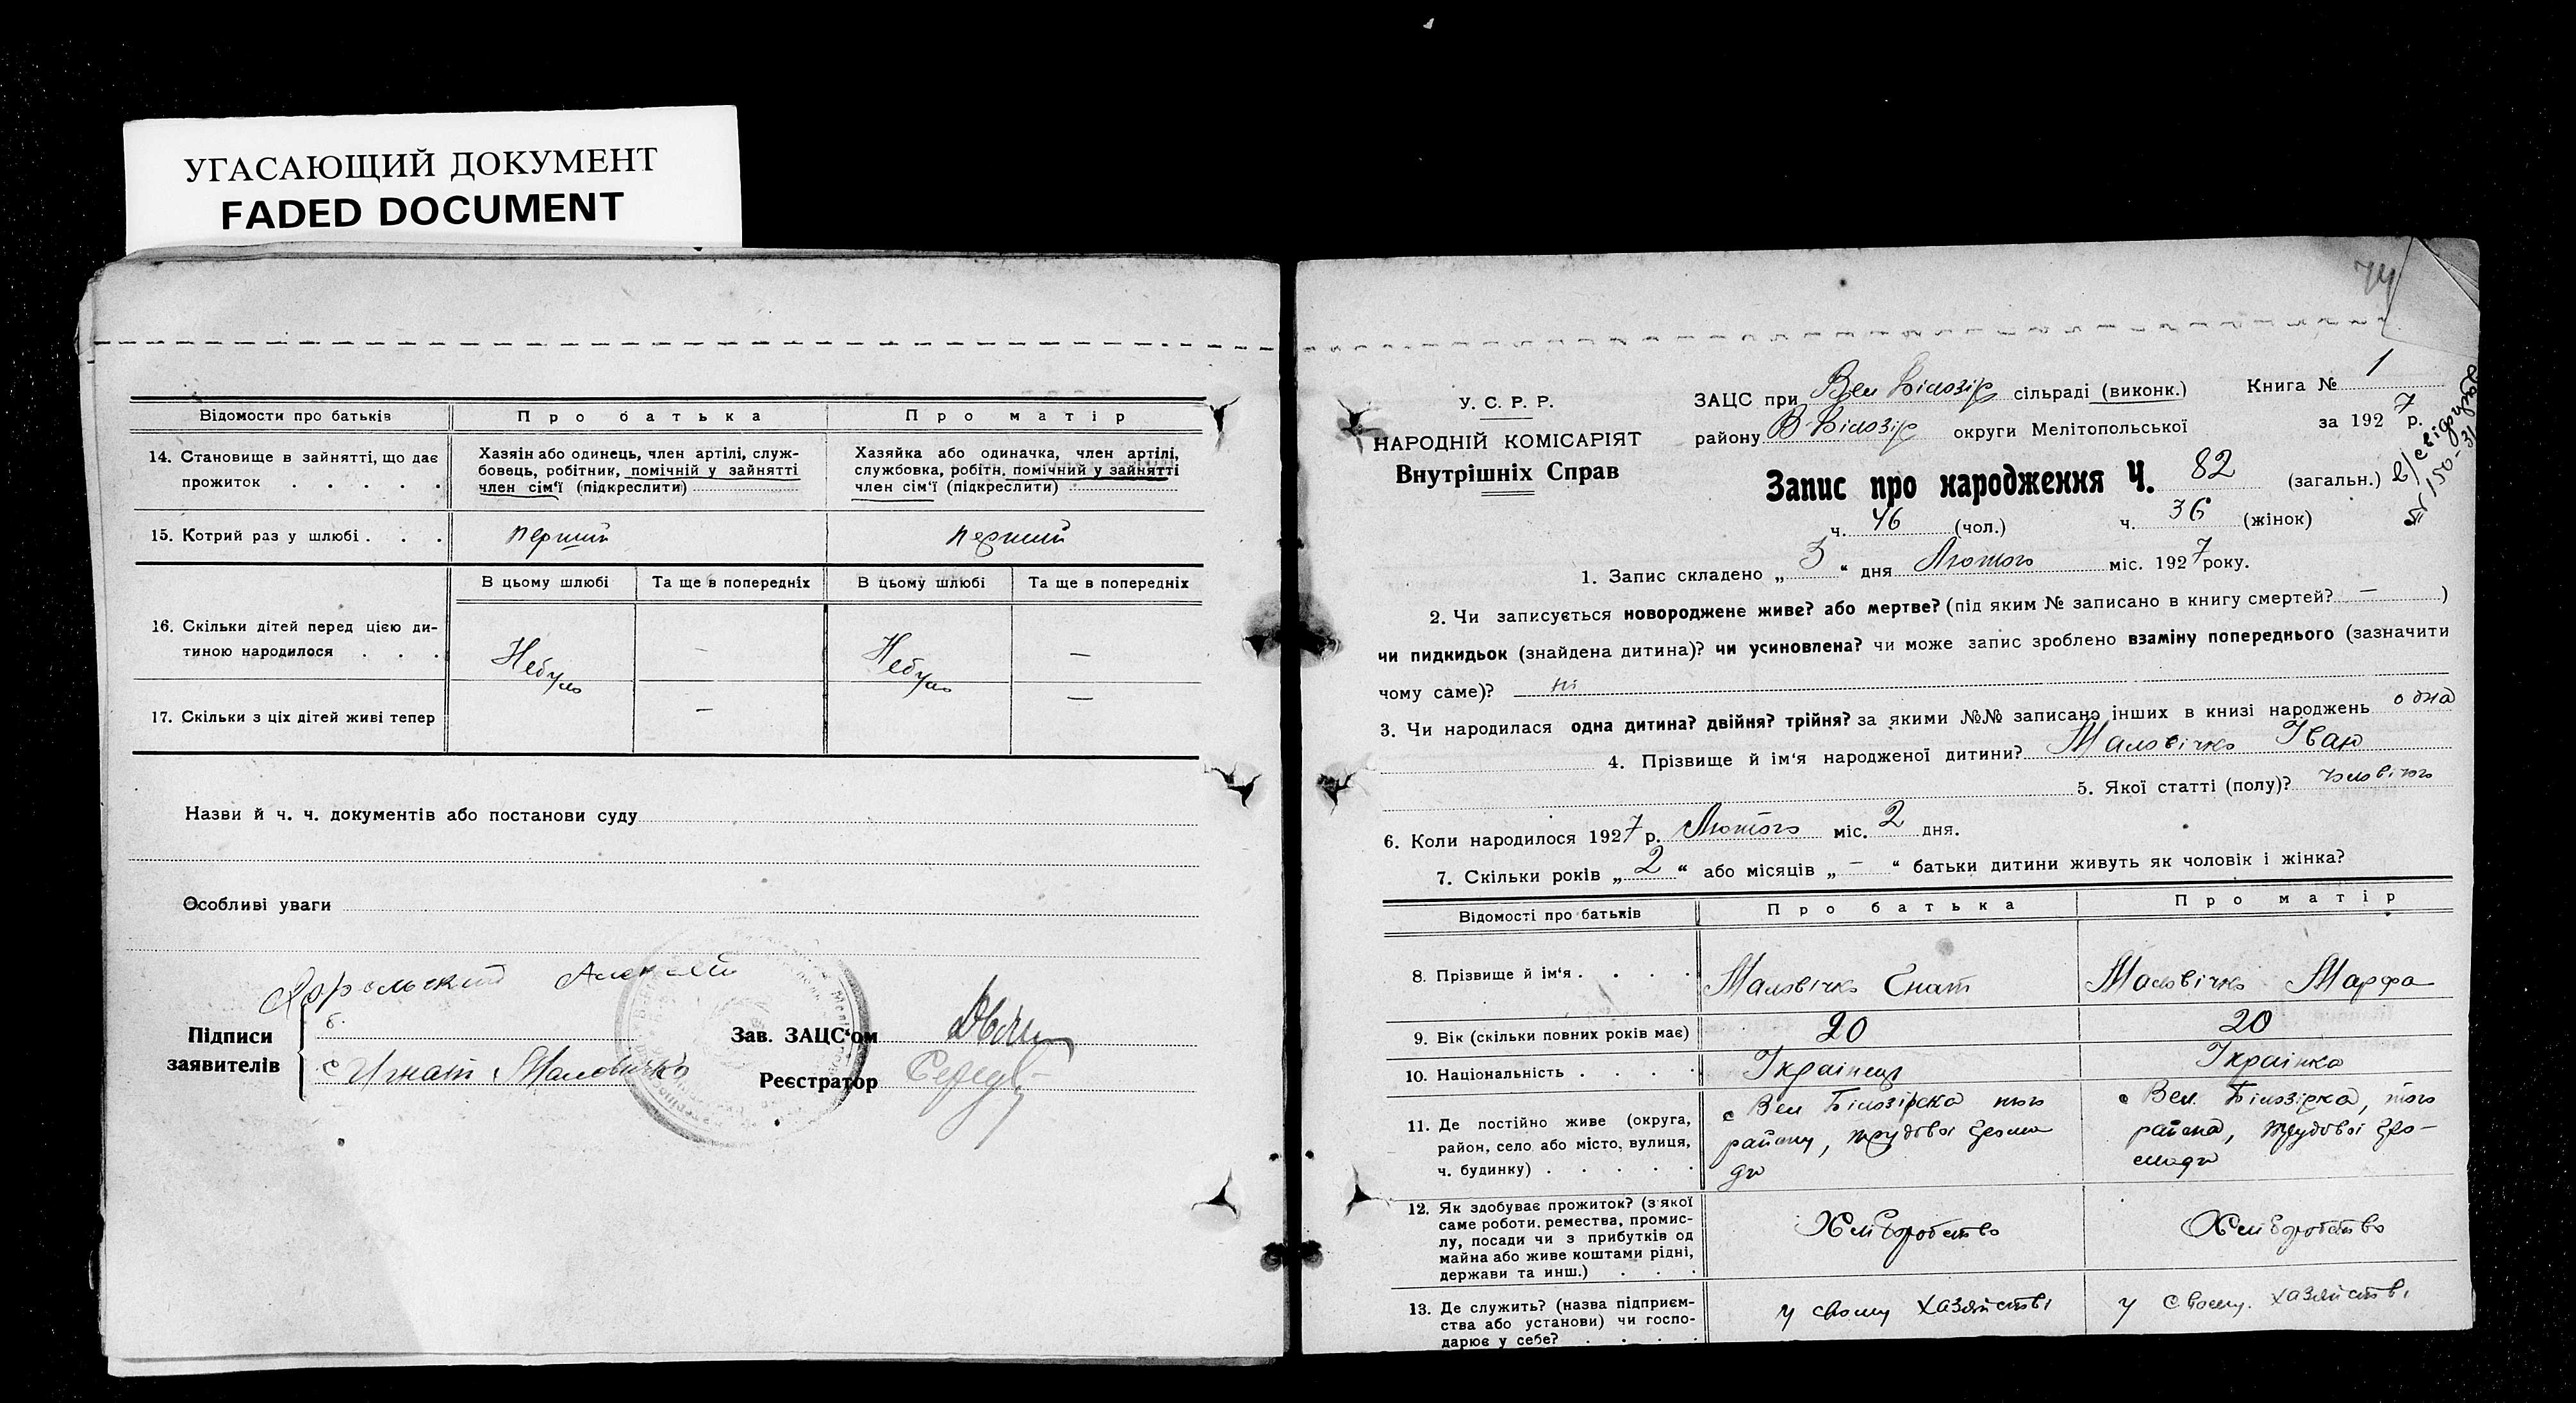 УГАСАЮЩИЙ ДОКУМЕНТ
FADED DOCUMENT
Відомости про батьків
Про батька
Про матір
14. Становище в зайнятті, що дає
прожиток . . . . .
Хазяін або одинець, член артілі, служ-
бовець, робітник, помічній у зайнятті
член сім'ї (підкреслити)
Хазяйка або одиначка, член артілі,
службовка, робітн. помічний у зайнятті
член сім'ї (підкреслити)
15. Котрий раз у шлюбі . . .
перший
перший
В цьому шлюбі
Та ще в попередніх
В цьому шлюбі
Та ще в попередніх
16. Скільки дітей перед цією ди-
тиною народилося . . .
Небуло
—
Небуло
—
17. Скільки з ціх дітей живі тепер
—
—
Назви й ч. ч. документів або постанови суду
Особливі уваги
Підписи
заявителів
Игнат Маловичко
Зав. ЗАЦС'ом
Реєстратор
74
У. С. Р. Р.
НАРОДНІЙ КОМІСАРІЯТ
Внутрішніх Справ
ЗАЦС при Вел Білозір сільраді (виконк.)
Книга № 1
району В-Білозір округи Мелітопольської
за 1927 р.
Запис про народження Ч. 82 (загальн.)
ч. 46 (чол.) ч. 36 (жінок)
1. Запис складено „ 3 “ дня Лютого міс. 1927 року.
2. Чи записується новороджене живе? або мертве? (під яким № записано в книгу смертей? — )
чи пидкидьок (знайдена дитина)? чи усиновлена? чи може запис зроблено взаміну попереднього (зазначити
чому саме)? ні
3. Чи народилася одна дитина? двійня? трійня? за якими №№ записано інших в книзі народжень одна
4. Прізвище й ім'я народженої дитини? Маловічко Іван
5. Якої статті (полу)?
6. Коли народилося 1927 р. Лютого міс. 2 дня.
7. Скільки років „ 2 “ або місяців „ — “ батьки дитини живуть як чоловік і жінка?
Відомості про батьків
Про батька
Про матір
8. Прізвище й ім'я . . . .
Маловічко Єнат
Маловічко Марфа
9. Вік (скільки повних років має)
20
20
10. Національність . . . .
Українец
Українка
11. Де постійно живе (округа,
район, село або місто, вулиця,
ч. будинку) . . . . .
с Вел Білозірска того
району, трудової грома
ди
с Вел. Білозірка, того
района, трудової гро-
мади
12. Як здобуває прожиток? (з якої
саме роботи. ремества, промис-
лу, посади чи з прибутків од
майна або живе коштами рідні,
держави та инш.) . . .
Хліборобство
Хліборобство
13. Де служить? (назва підприєм-
ства або установи) чи госпо-
дарює у себе? . . . .
у свому хазяйстві
у своєму. хазяйстві